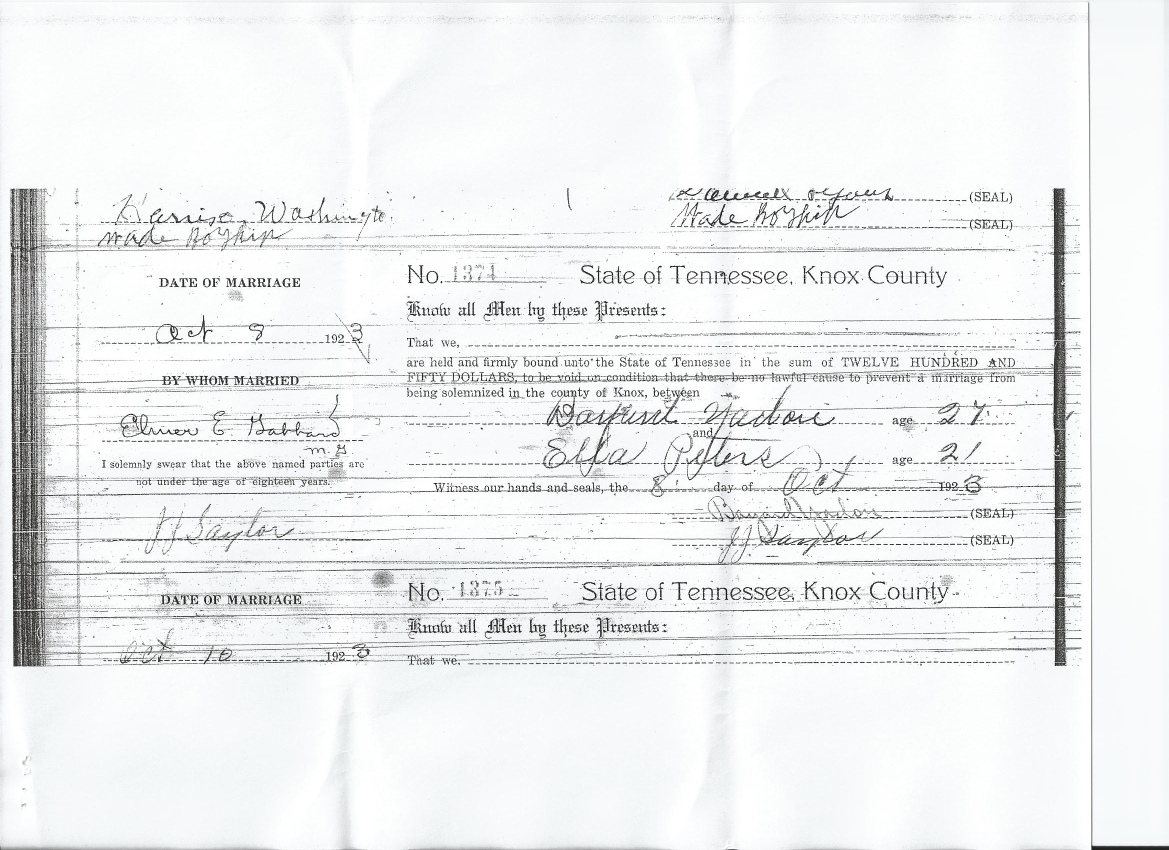 Harrison Washington
Wade Boyskin
(SEAL)
Wade Boyskin (SEAL)
DATE OF MARRIAGE
Oct 8 1923
BY WHOM MARRIED
Elmer E. Gabbard
M.G
I solemnly swear that the above named parties are
not under the age of eighteen years.
JJ Saylor
No. 1374 State of Tennessee, Knox County
Know all Men by these Presents:
That we,
are held and firmly bound unto the State of Tennessee in the sum of TWELVE HUNDRED AND
FIFTY DOLLARS, to be void on condition that there be no lawful cause to prevent a marriage from
being solemnized in the county of Knox, between
Yadon age 27
and
Ella Peters age 21
Witness our hands and seals, the 8 day of Oct 1923
Bayard Yadon (SEAL)
JJ Saylor (SEAL)
DATE OF MARRIAGE
Oct 10 1923
No. 1375 State of Tennessee, Knox County
Know all Men by these Presents:
That we,